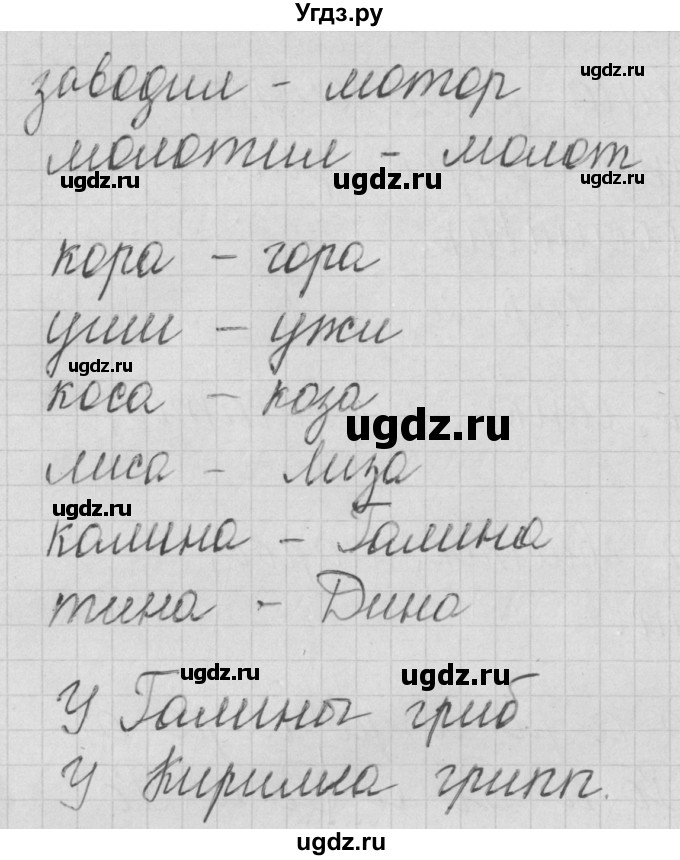 Угдз.ру
заводил - мотор
ugdz.ru
молотил - молот
ugdz.ru ugdz.ru ugdz.ru
кора - гора
уши - ужи
ugdz.ru
коса - коза
ugdz.ru
лиса - Лиза
ugdz.ru
калина - Галина
тина - Дина
ugdz.ru ugdz.ru
У Галины гриб
У Кирилла грипп.
ugdz.ru